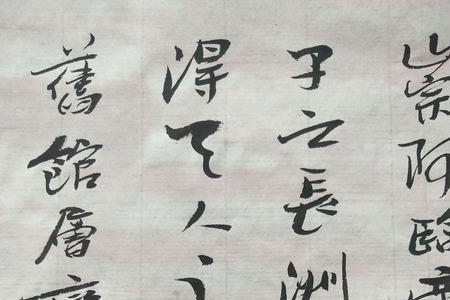 崇阿臨帝
子之長洲
得天人之
舊館層